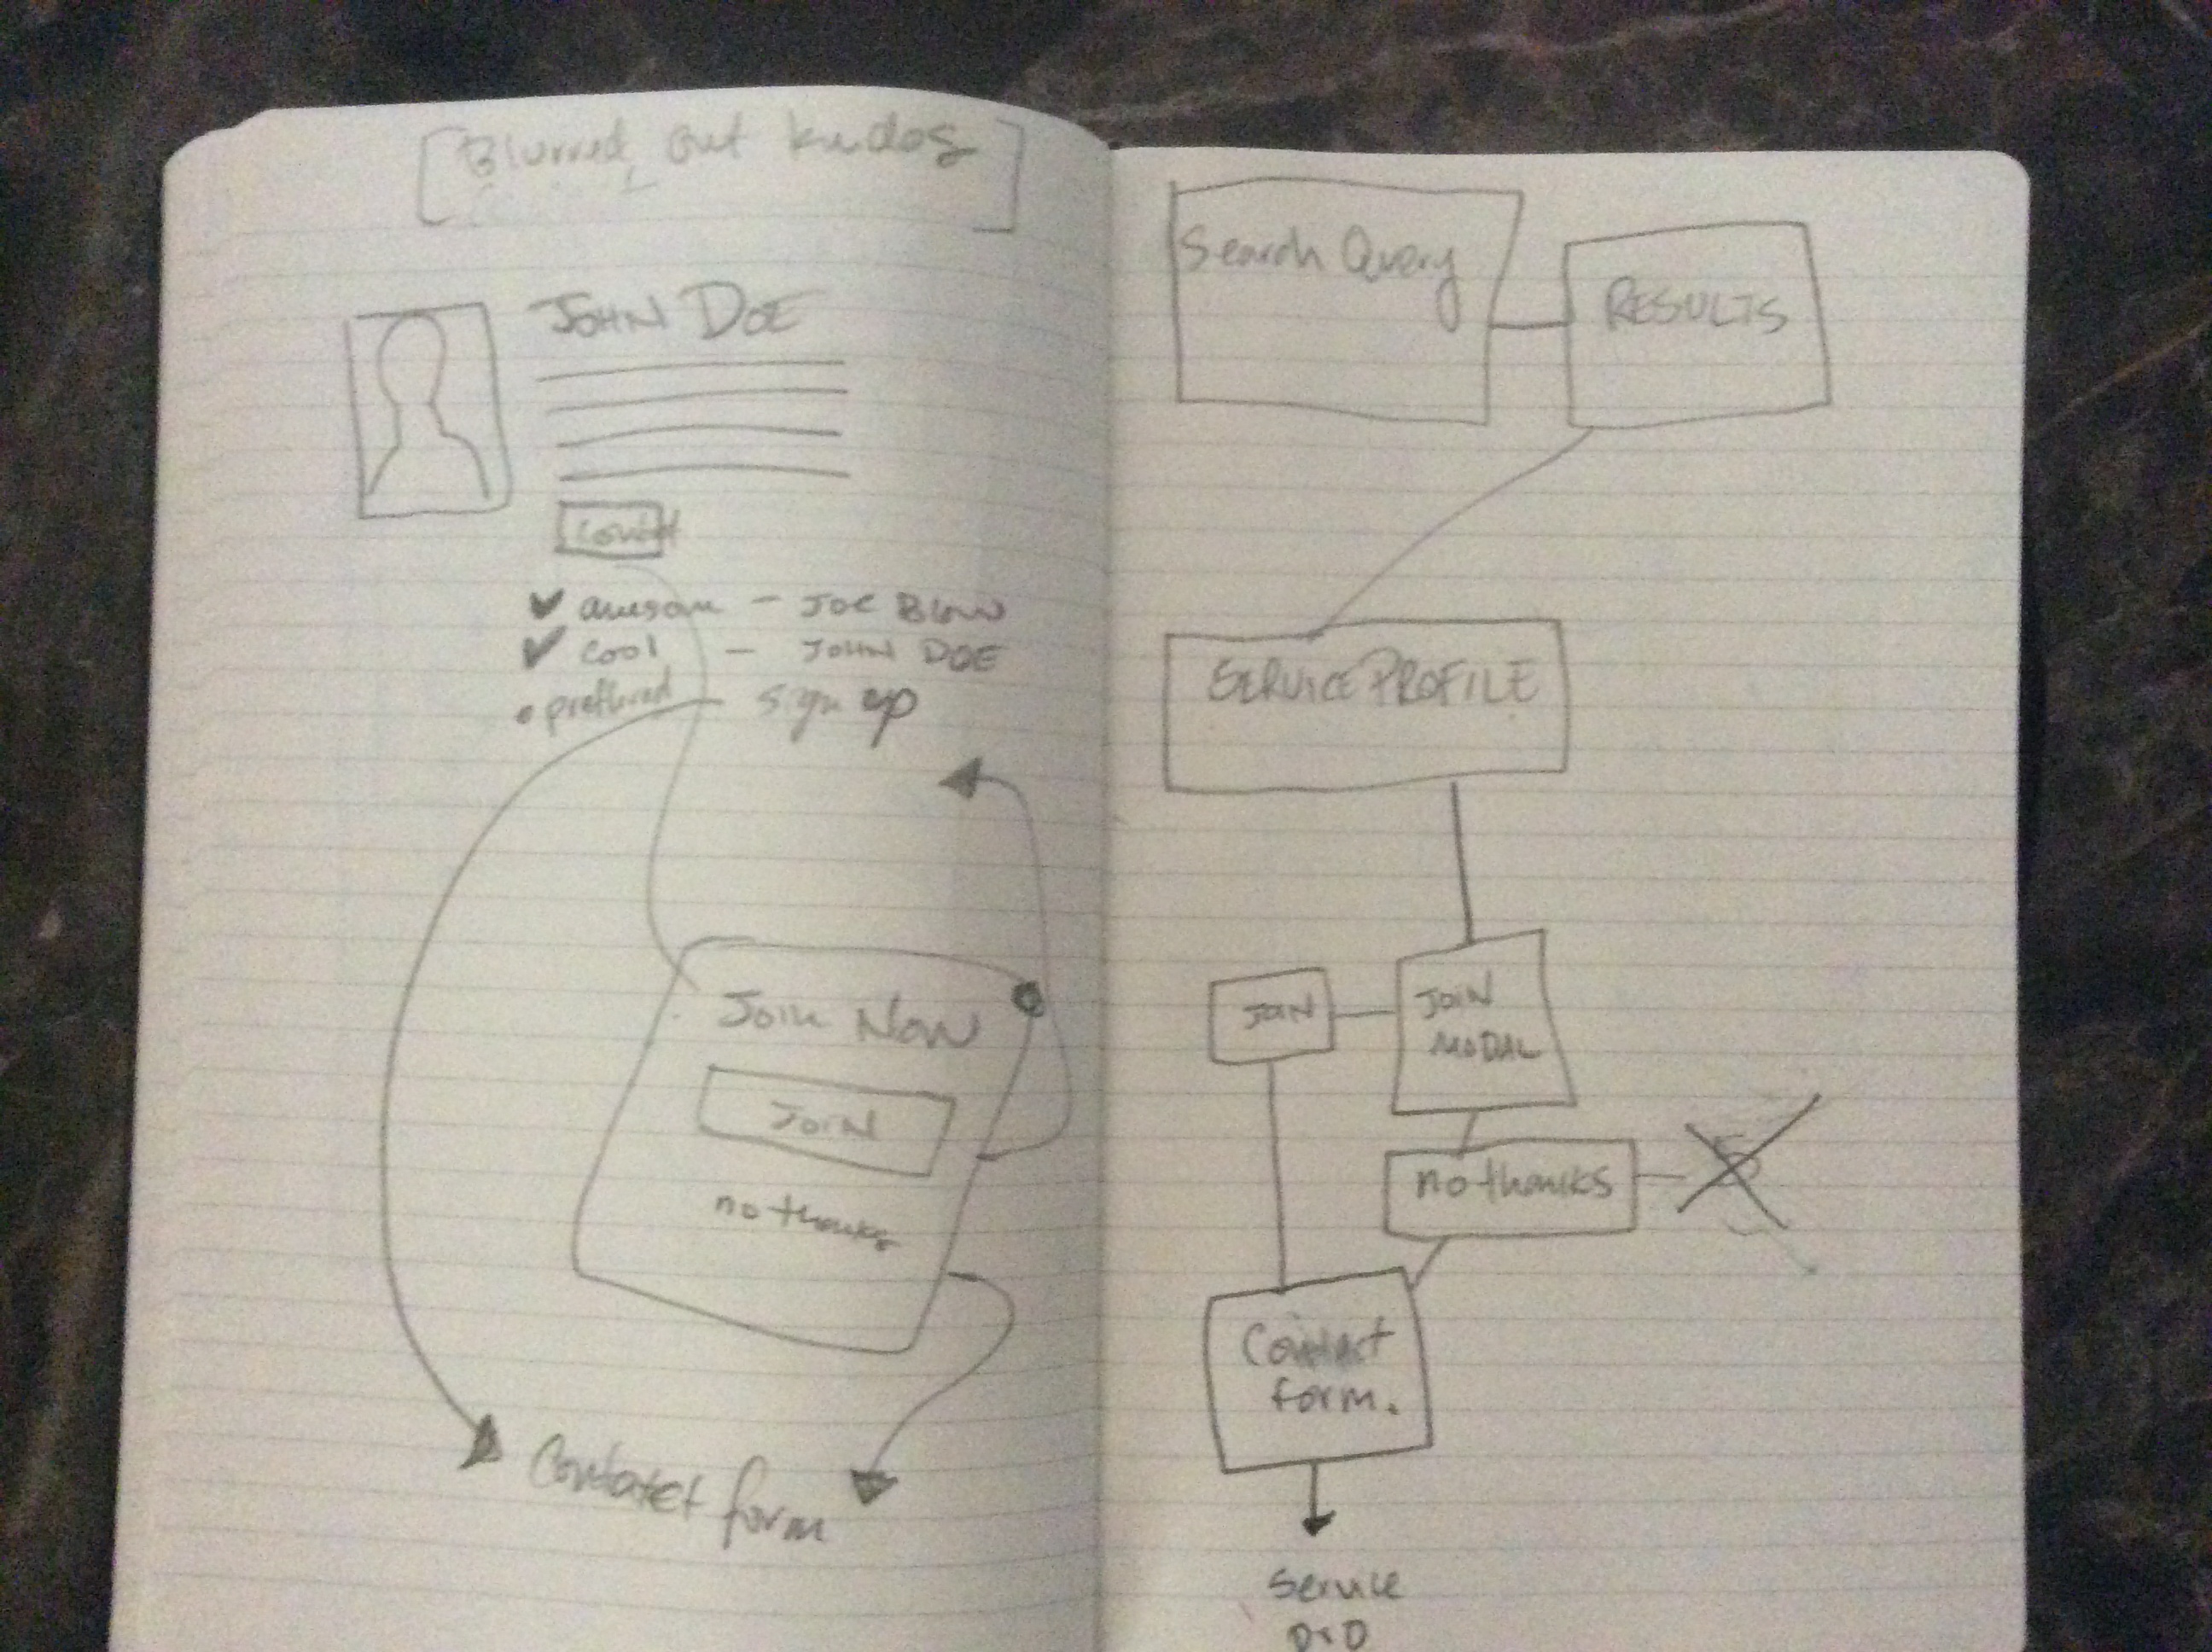 [Blurred out kudos]
JOHN DOE
awesome - JOE BLOW
cool - JOHN DOE
preferred - sign up
Join Now
JOIN
no thanks
Contact form
Search Query
RESULTS
SERVICE PROFILE
JOIN
JOIN
MODAL
no thanks
Contact
form.
Service